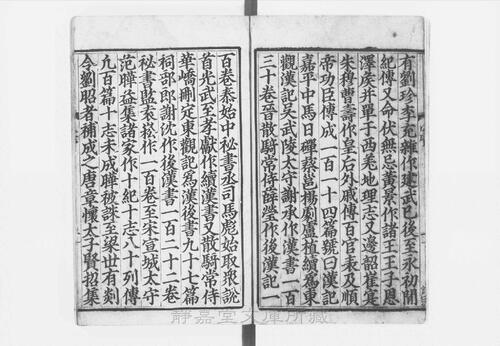 有劉珍李尤雜作建武已後至永初間
紀傳又命伏無忌黃景作諸王王子恩
澤侯并單于西羌地理志又邊韶崔寔
朱穆曹壽作皇后外戚傳百官表及順
帝功臣傳成一百一十四篇號曰漢記
嘉平中馬日磾蔡邕楊彪盧植續爲東
觀漢記吳武陵太守謝承作漢書一百
三十卷晉散騎常侍薛瑩作後漢記一
百卷泰始中祕書丞司馬彪始取衆說
首光武至孝獻作續漢書又散騎常侍
華嶠刪定東觀記爲漢後書九十七篇
祠部郎謝沈作後漢書一百二十二卷
祕書監袁崧作一百卷至宋宣城太守
范曄益集諸家作十紀十志八十列傳
九百篇十志未成曄被誅至梁世有剡
令劉昭者補成之唐章懷太子賢招集
靜嘉堂文庫所藏